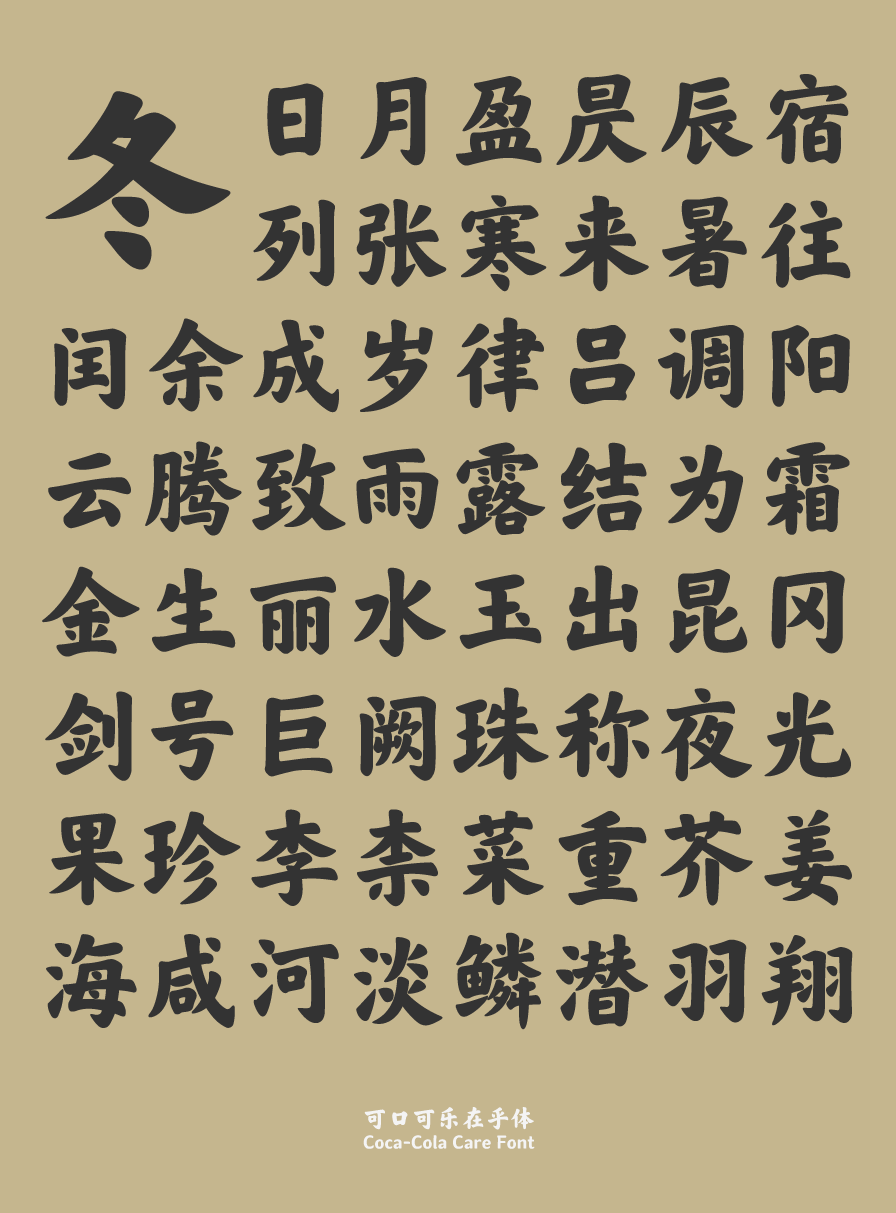 冬
日月盈昃辰宿
列张寒来暑往
闰余成岁律吕调阳
云腾致雨露结为霜
金生丽水玉出昆冈
剑号巨阙珠称夜光
果珍李柰菜重芥姜
海咸河淡鳞潜羽翔
可口可乐在乎体
Coca-Cola Care Font